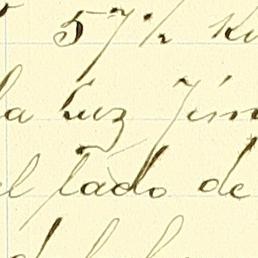 57½ K
la Luz Jim
el lado de